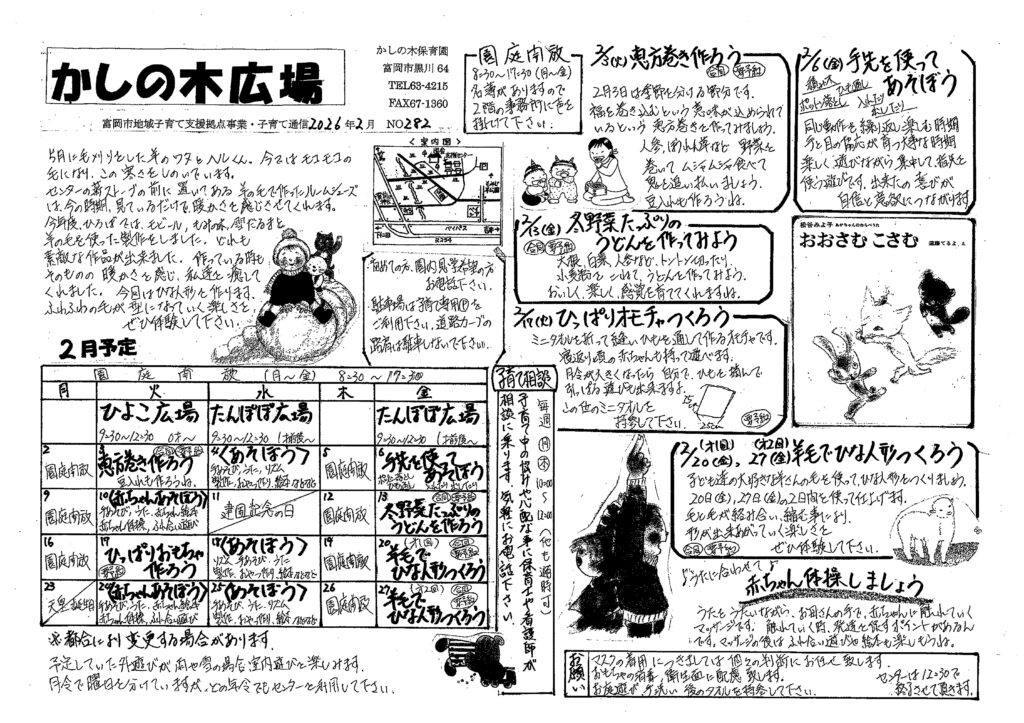 かしの木広場
富岡市地域子育て支援拠点事業・子育て通信 2026年2月 NO282
かしの木保育園
富岡市黒川64
TEL63-4215
FAX67-1360
5月に毛刈りをした羊のワタとハルくん。今ではモコモコの
毛になり、この寒さをしのいでいます。
センターの薪ストーブの前に置いてある羊の毛で作ったルームシューズ
は、今の時期、見ているだけで、暖かさを感じさせてくれます。
羊の毛を使った製作をしました。どれも
素敵な作品が出来ました。作っている時も
そのものの暖かさを感じ、私達を癒して
くれました。今回はひな人形を作ります。
ふわふわの毛が型になっていく楽しさを、
ぜひ体験して下さい。
<案内図>
バイパス
R254
初めての方、園内見学希望の方
お電話下さい。
園庭開放
8:30~17:30(月~金)
名簿がありますので
2階の事務所に声を
掛けて下さい。
2/3(火)恵方巻き作ろう
2月3日は季節を分ける節分です。
福を巻き込むという意味が込められて
いるという恵方巻きを作ってみましょう。
人参、ほうれん草など野菜を
巻いてムシャムシャ食べて
鬼を追い払いましょう。
豆入れも作ろうね。
2/6(金)手先を使って
あそぼう
同じ動作を繰り返し楽しむ時期
手と目の協応が育つ大事な時期
楽しく遊びながら集中して指先を
使う遊びです。出来た喜びが
自信と意欲につながります
2/13(金)冬野菜たっぷりの
うどんを作ってみよう
大根、白菜、人参など、トントン切ったり、
小麦粉をこねて、うどんを作ってみよう。
おいしく、楽しく、感覚を育ててくれますね。
2/17(火)ひっぱりオモチャつくろう
ミニタオルを折って縫い、ひもを通して作るオモチャです。
月令が大きくなったら自分で、ひもを掴んで
引っぱる遊びも出来ますよ。
この位のミニタオルを
持参して下さい。
25cm
要予約
松谷みよ子 あかちゃんのわらべうた
おおさむ こさむ
遠藤てるよ、え
2月予定
園庭開放(月~金) 8:30~17:30
月 火 水 木 金
ひよこ広場 たんぽぽ広場 たんぽぽ広場
9:30~12:30 0才~ 9:30~12:30 1才前後~ 9:30~12:30 1才前後~
2 園庭開放
3 恵方巻き作ろう
豆入れも作ろう
4 <あそぼう>
5 園庭開放
6 手先を使って
あそぼう
9 園庭開放
10 <赤ちゃんあそぼう>
11 建国記念の日
12 園庭開放
13 冬野菜たっぷりの
うどんを作ろう
16 園庭開放
17 ひっぱりおもちゃ
作ろう
18 <あそぼう>
19 園庭開放
20 (オ1回)
羊毛で
ひな人形つくろう
23 天皇誕生日
24 <赤ちゃんあそぼう>
25 <あそぼう>
26 園庭開放
27 (オ2回)
羊毛で
ひな人形つくろう
※都合により変更する場合があります。
予定していた外遊びが雨や雪の場合室内遊びを楽しみます。
月令で曜日を分けていますが、どの年令でもセンターを利用して下さい。
子育て相談
毎週(月・木)10:00~12:00(他も随時可)
子育て中の悩みや心配な事に保育士や看護師が
相談に乗ります。気軽にお電話下さい。
2/20(金)、27(金)羊毛でひな人形つくろう
(オ1回) (オ2回)
子ども達の大好きな羊さんの毛を使って、ひな人形をつくりましょう。
20日(金)、27日(金)の2日間を使って仕上げます。
毛と毛が絡み合い、縮む事により、
形が出来あがっていく楽しさを
ぜひ体験して下さい。
♪うたに合わせて♪
赤ちゃん体操しましょう
うたをうたいながら、お母さんの手で、赤ちゃんに触れていく
マッサージです。触れていく間、発達を促すポイントがあるん
です。マッサージの後は、ふれあい遊びや絵本も楽しもうね。
お願い
マスクの着用につきましては個々の判断にお任せ致します。
おもちゃの消毒、衛生面に配慮致します。
お庭遊び、手洗い後のタオルを持参して下さい。
センターは12:30で
終了させて頂きます。